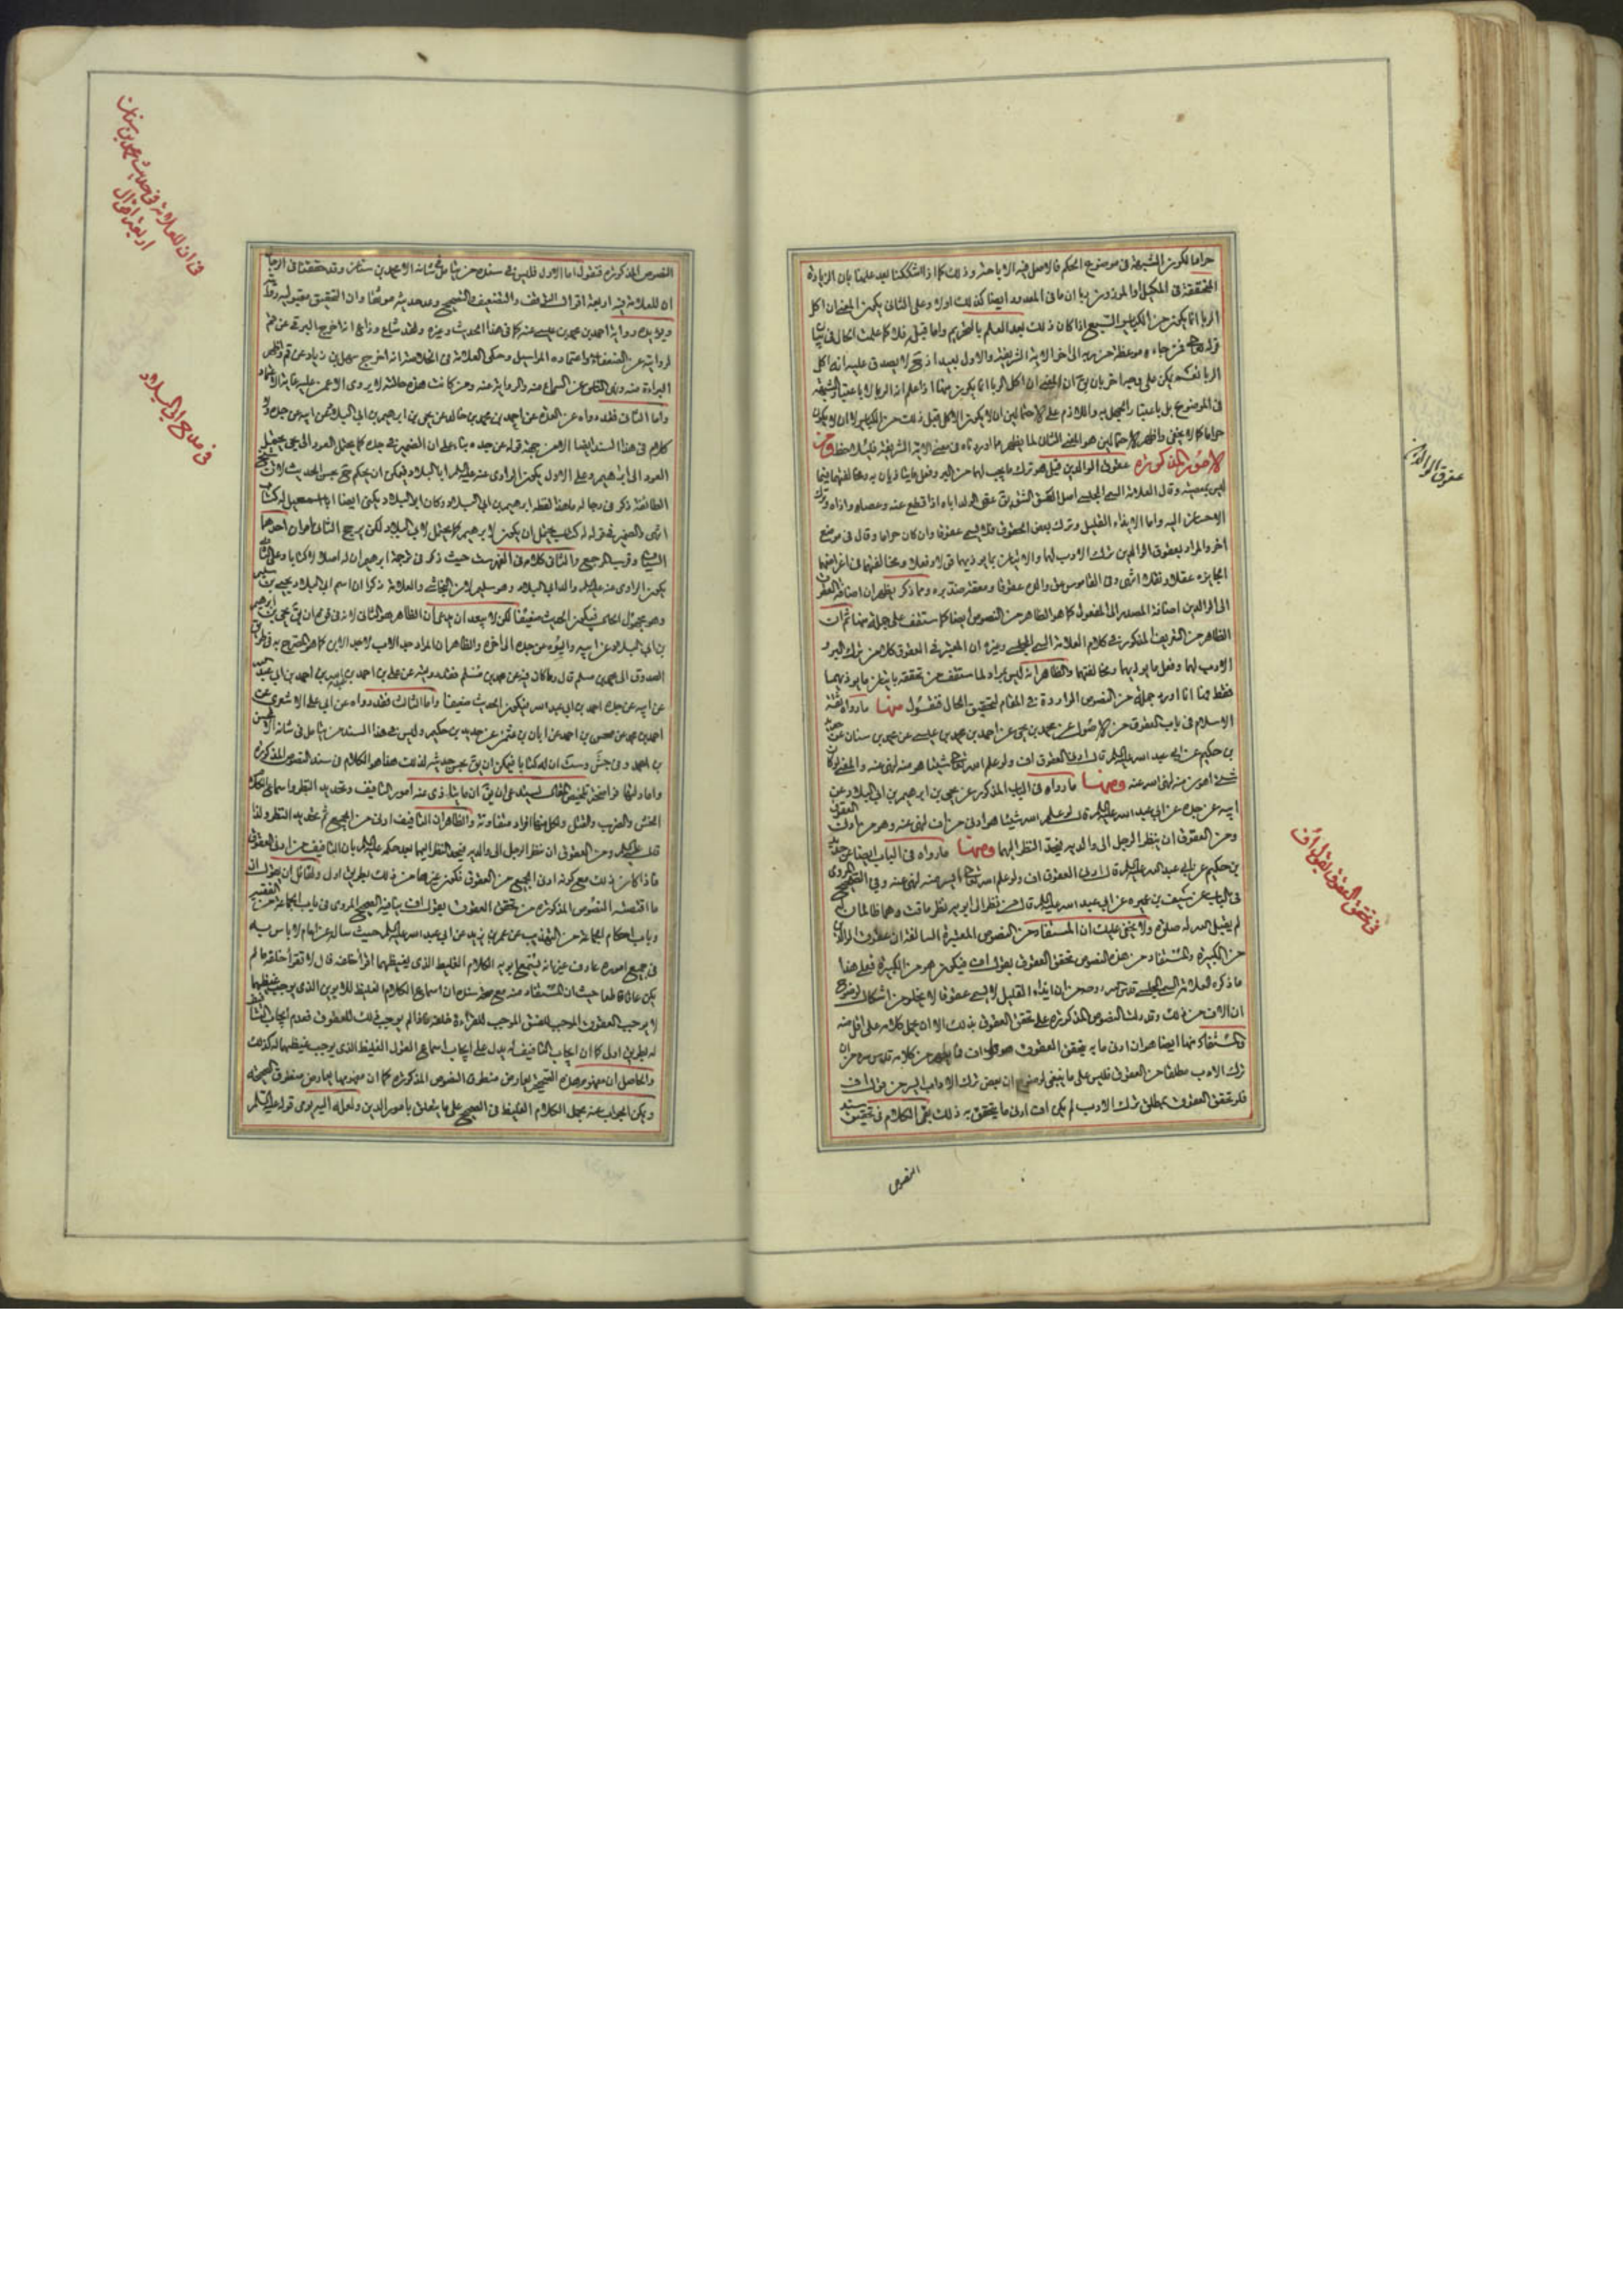 حراما لكون الشبهة في موضوع الحكم فالاصل فيه الاباحة وذلك كما اذا شككنا بعد علمنا بان الزيادة
المتحققة في المكيل او الموزون ربا ان ما في المعدود ايضا كذلك اولا وعلى الثاني يكون المعنى ان اكل
الربا انما يكون من الكبائر السبع اذا كان ذلك بعد العلم بالتحريم واما قبله فلا كما علمت الحال في بيان
قوله تعالى فمن جاءه موعظة من ربه الى اخر الاية الشريفة والاول بعيد اذ لا يصدق عليه انه اكل
الربا
في الموضوع بل باعتبار الجهل به واللازم على الاحتمالين ان لا يكون الاكل قبل ذلك من الكبائر لا ان لا يكون
حراما كما لا يخفى واظهر الاحتمالين هو المعنى الثاني لما يظهر مما اوردناه في معنى الاية الشريفة فليلاحظ ومن
الامور المذكورة عقوق الوالدين قيل هو ترك ما يجب لهما من البر وفعل ما يتاذيان به ومخالفتهما فيما
ليس بمعصية وقال العلامة السمي المجلسي اصل العق الشق يق عق الولد اباه اذا قطع عنه وعصاه واذاه وترك
الاحسان اليه واما الايذاء القليل وترك بعض الحقوق فلا يسمى عقوقا وان كان حراما وقال في موضع
اخر والمراد بعقوق الوالدين ترك الادب لهما والاتيان بما يوذيهما قولا وفعلا ومخالفتهما في اغراضهما
الجايزة عقلا ونقلا انتهى وفي القاموس عق والده عقوقا ومعقة ضد بره ومما ذكر يظهر ان اضافة العقوق
الى الوالدين اضافة المصدر الى المفعول كما هو الظاهر من النصوص ايضا كما ستقف على جملة منها ثم ان
الظاهر من التعريف المذكور في كلام العلامة السمي المجلسي وغيره ان المعتبر في العقوق كلا من ترك البر و
الادب لهما وفعل ما يوذيهما ومخالفتهما والظاهر انه ليس بمراد لما ستقف من تحققه بالنظر ما يوذيهما
فقط هنا انا اورد جملة من النصوص الواردة في المقام لتحقيق الحال فنقول منها ما رواه ثقة
الاسلام في باب العقوق من الاصول عن محمد بن يحيى عن احمد بن محمد بن عيسى عن محمد بن سنان عن حديد
بن حكيم عن ابي عبد الله عليه السلام قال ادنى العقوق اف ولو علم الله تعالى شيئا هو منه لنهى عنه والمعنى لو كان
شيء اهون منه لنهى الله عنه ومنها ما رواه في الباب المذكور عن يحيى بن ابرهيم بن ابي البلاد عن
ابيه عن جده عن ابي عبد الله عليه السلام قال لو علم الله شيئا هو ادنى من اف لنهى عنه وهو من ادنى العقوق
ومن العقوق ان ينظر الرجل الى والديه فيحد النظر اليهما ومنها ما رواه في الباب ايضا عن حديد
بن حكيم عن ابي عبد الله عليه السلام قال ادنى العقوق اف ولو علم الله تعالى ايسر منه لنهى عنه وفي الصحيح المروي
في الباب عن سيف بن عميرة عن ابي عبد الله عليه السلام قال من نظر الى ابويه نظر ماقت وهما ظالمان له
لم يقبل الله له صلوة ولا يخفى عليك ان المستفاد من النصوص المعتبرة السالفة ان عقوق الوالدين
من الكبيرة والمستفاد من هذه النصوص تحقق العقوق بقول اف فيكون هو من الكبيرة فعلى هذا
ما ذكره العلامة السمي المجلسي قدس سره من ان ايذاء القليل لا يسمى عقوقا لا يخلو من اشكال لوضوح
ان الاف من ذلك وقد دلت النصوص المذكورة على تحقق العقوق بذلك الا ان يحمل كلامه على اقل منه
والمستفاد منها ايضا هو ان ادنى ما به يتحقق العقوق هو قول اف فما يظهر من كلامه قدس سره من ان
ترك الادب مطلقا من العقوق فليس على ما ينبغي لوضوح ان بعض ترك الاداب ايسر من قول اف
فلو تحقق العقوق بمطلق ترك الادب لم يكن اف ادنى ما يتحقق به ذلك بقي الكلام في تحقيق سند
النصوص
عقوق الوالدين
في تحقق العقوق بقول اف
النصوص المذكورة فنقول اما الاول فليس في سنده من يتامل في شانه الا محمد بن سنان وقد حققنا في الرجال
ان للعلامة فيه اربعة اقوال التوقف والتضعيف والتصحيح وعد حديثه موثقا وان التحقيق مقبوليته
ويؤيده رواية احمد بن محمد بن عيسى عنه كما في هذا الحديث وغيره وقد شاع وذاع انه اخرج البرقي عن قم
لروايته عن الضعفاء واعتماده المراسيل وحكى العلامة في الخلاصة انه اخرج سهل بن زياد عن قم واظهر
البراءة منه ونهى الناس عن السماع منه والرواية عنه ومن كانت هذه حالته لا يروي الا عمن عليه غاية الاعتماد
واما الثاني فقد رواه عن العدة عن احمد بن محمد بن خالد عن يحيى بن ابرهيم بن ابي البلاد عن ابيه عن جده ولا
كلام في هذا السند ايضا الا من جهة قوله عن جده بناء على ان الضمير في جده كما يحتمل العود الى يحيى يحتمل
العود الى ابرهيم وعلى الاول يكون الراوي عنه عليه السلام ابا البلاد فيمكن ان يحكم بحسن الحديث لان شيخ
الطائفة ذكر في رجاله ما هذا لفظه ابرهيم بن ابي البلاد وكان ابو البلاد يكنى ايضا ابا اسمعيل له كتاب
انتهى والضمير في قوله له كتاب يحتمل ان يكون لابرهيم كما يحتمل لابي البلاد لكن يرجح الثاني امران احدهما
السياق وقرب المرجع والثاني كلامه في الفهرست حيث ذكر في ترجمة ابرهيم ان له اصلا لا كتابا وعلى الثاني
يكون الراوي عنه عليه السلام والد ابي البلاد وهو سليم لان النجاشي والعلامة ذكرا ان اسم ابي البلاد يحيى بن سليم
وهو مجهول الحال فيكون الحديث ضعيفا لكن لا يبعد ان يدعى ان الظاهر هو الثاني لانه في قوة ان يق يحيى بن ابرهيم
بن ابي البلاد عن ابيه
الصدوق الى محمد بن مسلم قال وما كان فيه عن محمد بن مسلم فقد رويته عن علي بن احمد بن عبد الله بن احمد بن ابي عبد الله
عن ابيه عن جده احمد بن ابي عبد الله فيكون الحديث ضعيفا واما الثالث فقد رواه عن ابي علي الاشعري عن
احمد بن محمد عن محسن بن احمد عن ابان بن عثمن عن حديد بن حكيم وليس في هذا السند من يتامل في شانه الا محسن
بن احمد وفي جش وست ان له كتابا فيمكن ان يق بحسن حديثه لذلك هذا هو الكلام في سند النصوص المذكورة
واما دلالتها
الخشن والضرب والقتل ولكل منها افراد متفاوتة والظاهر ان التافيف ادنى من الجميع ثم تحديد النظر ولذا
قال عليه السلام ومن العقوق ان ينظر الرجل الى والديه فيحد النظر اليهما بعد حكمه عليه السلام بان التافيف من ادنى العقوق
فاذا كان ذلك مع كونه ادنى الجميع من العقوق فكون غيرها من ذلك بطريق اولى ولقائل ان يقول ان
ما اقتضته النصوص المذكورة من تحقق العقوق بقول اف ينافيه الصحيح المروي في باب الجماعة من الفقيه
وباب احكام الجماعة من التهذيب عن عمر بن يزيد عن ابي عبد الله عليه السلام حيث ساله عن امام لا باس به
في جميع اموره عارف غير انه يسمع ابويه الكلام الغليظ الذي يغيظهما اقرأ خلفه قال لا تقرأ خلفه ما لم
يكن عاقا قاطعا حيث ان المستفاد منه مع صحة سنده ان اسماع الكلام الغليظ للابوين الذي يوجب غيظهما
لا يوجب العقوق الموجب للفسق الموجب للقراءة خلفه فاذا لم يوجب ذلك للعقوق فعدم ايجاب التافيف
له بطريق اولى كما ان ايجاب التافيف له يدل على ايجاب اسماع القول الغليظ الذي يوجب غيظهما له كذلك
والحاصل ان مفهوم هذه الصحيحة يعارض منطوق النصوص المذكورة كما ان مفهومها يعارض منطوق الصحيحة
ويمكن الجواب عنه بحمل الكلام الغليظ في الصحيح على ما يتعلق بامور الدين ولعله اليه يومي قوله عليه السلام
في ان للعلامة في حديث محمد بن سنان
اربعة اقوال
في مدح ابي البلاد